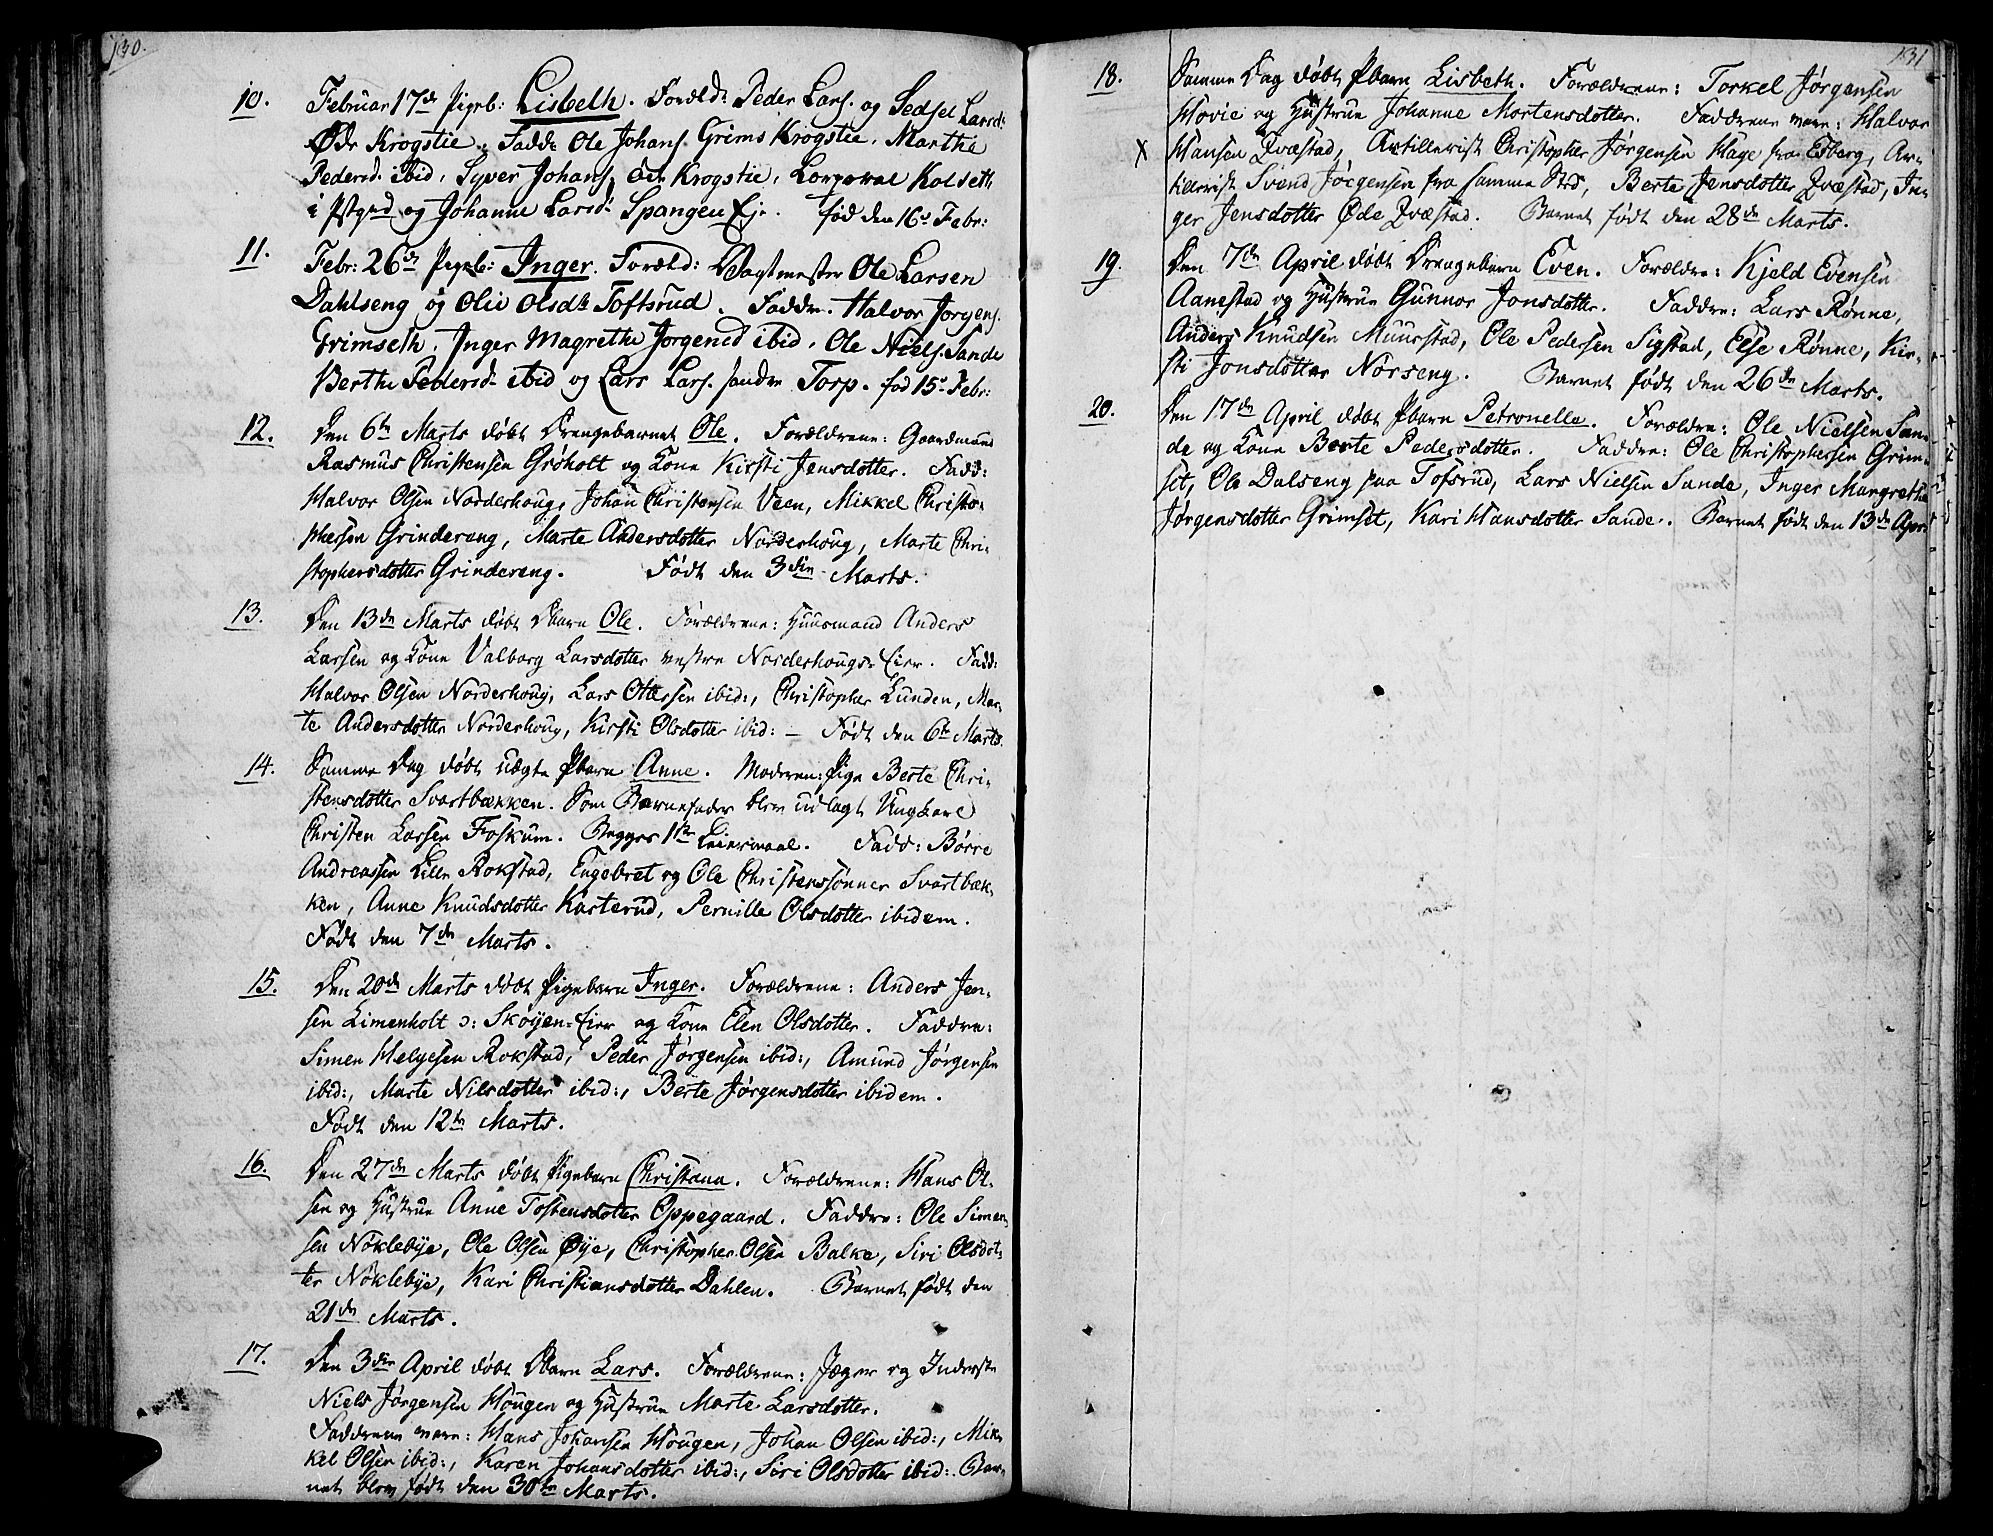 130.
10. Februar 17de Pigeb: Lisbeth. Foreld: Peder Lars. og Sedsel Larsd:
Øde Krogstie. Fadd: Ole Johans. Grims Krogstie, Marthe
Pedersd. ibid, Syver Johans. øde Krogstie, Corporal Kolseth
i og Johanne Larsd. Spangen Eje. fød den 16de Febr:
11. Febr: 26de Pigeb: Inger. Foreld: Vagtmester Ole Larsen
Dahlseng og Olie Olsdtr Toftsrud. Faddr. Halvor Jørgens.
Grimseth, Inger Magrethe Jørgensd ibid, Ole Niels. Sande
Berthe Pedersd. ibid og Lars Lars. søndre Torp. fød 15de Febr:
12. Den 6te Marts døbt Drengebarnet Ole. Forældrene: Gaardmand
Rasmus Christensen Grøholt og Kone Kirsti Jensdotter. Fadd:
Halvor Olsen Norderhoug, Johan Christensen Veen, Mikkel Christo-
phersen Grindereng, Marte Andersdotter Norderhoug, Marte Chri-
stophersdotter Grindereng. Født den 3die Marts.
13. Den 13de Marts døbt Dbarn Ole. Forældrene: Huusmand Anders
Larsen og Kone Valborg Larsdotter vestre Norderhougs-Eier. Fadd:
Halvor Olsen Norderhoug, Lars Ottesen ibid:, Christopher Lunden, Mar-
te Andersdotter Norderhoug, Kirsti Olsdotter ibid: – Født den 6te Marts.
14. Samme Dag døbt uægte Pbarn Anne. Moderen: Pige Berte Chri-
stensdotter Svartbækken. Som Barnefader blev udlagt Ungkarl
Christen Larsen Foskum. Begges 1ste Leiermaal. Fadd: Børre
Andreassen Lille Rokstad, Engebret og Ole Christenssønner Svartbæk-
ken, Anne Knudsdotter Kasterud, Pernille Olsdotter ibidem.
Født den 7de Marts.
15. Den 20de Marts døbt Pigebarn Inger. Forældrene: Anders Jen-
sen Limenholt ɔ: Skøyen-Eier og Kone Elen Olsdotter. Faddre:
Simen Helgesen Rokstad, Peder Jørgensen ibid:, Amund Jørgensen
ibid:, Marte Nilsdotter ibid:, Berte Jørgensdotter ibidem.
Født den 12te Marts.
16. Den 27de Marts døbt Pigebarn Christiana. Forældrene: Hans Ol-
sen og Hustrue Anne Tostensdotter Oppegaard. Faddre: Ole Simen-
sen Nøklebye, Ole Olsen Øye, Christopher Olsen Balke, Siri Olsdot-
ter Nøklebye, Kari Christiansdotter Dahlen. Barnet født den
21de Marts.
17. Den 3die April døbt Dbarn Lars. Forældrene: Jæger og Inderste
Niels Jørgensen Hougen og Hustrue Marte Larsdotter.
Faddrene vare: Hans Johansen Hougen, Johan Olsen ibid:, Mik-
kel Olsen ibid:, Karen Johansdotter ibid:, Siri Olsdotter ibid: Bar-
net blev født den 30te Marts.
131
18. Samme Dag døbt Pbarn Lisbeth. Forældrene: Torkel Jørgensen
Hovie og Hustrue Johanne Mortensdotter. Faddrene vare: Halvor
X Hansen Qvæstad, Artillerist Christopher Jørgensen Hage fra Esberg, Ar-
tillerist Svend Jørgensen fra samme Sted, Berte Jensdotter Qvæstad, In-
ger Jensdotter Øde Qvæstad. Barnet født den 28de Marts.
19. Den 7de April døbt Drengebarn Even. Forældre: Kjeld Evensen
Aanestad og Hustrue Gunnor Jonsdotter. Faddre: Lars Rønne,
Anders Knudsen Muurstad, Ole Pedersen Sigstad, Else Rønne, Kir-
sti Jonsdotter Norseng. Barnet født den 26de Marts.
20. Den 17de April døbt Pbarn Petronelle. Forældre: Ole Nielsen San-
de og Kone Berte Pedersdotter. Faddre: Ole Christophersen Grim-
set, Ole Dalseng paa Tofsrud, Lars Nielsen Sande, Inger Margrethe
Jørgensdotter Grimset, Kari Hansdotter Sande. Barnet født den 13de Apr